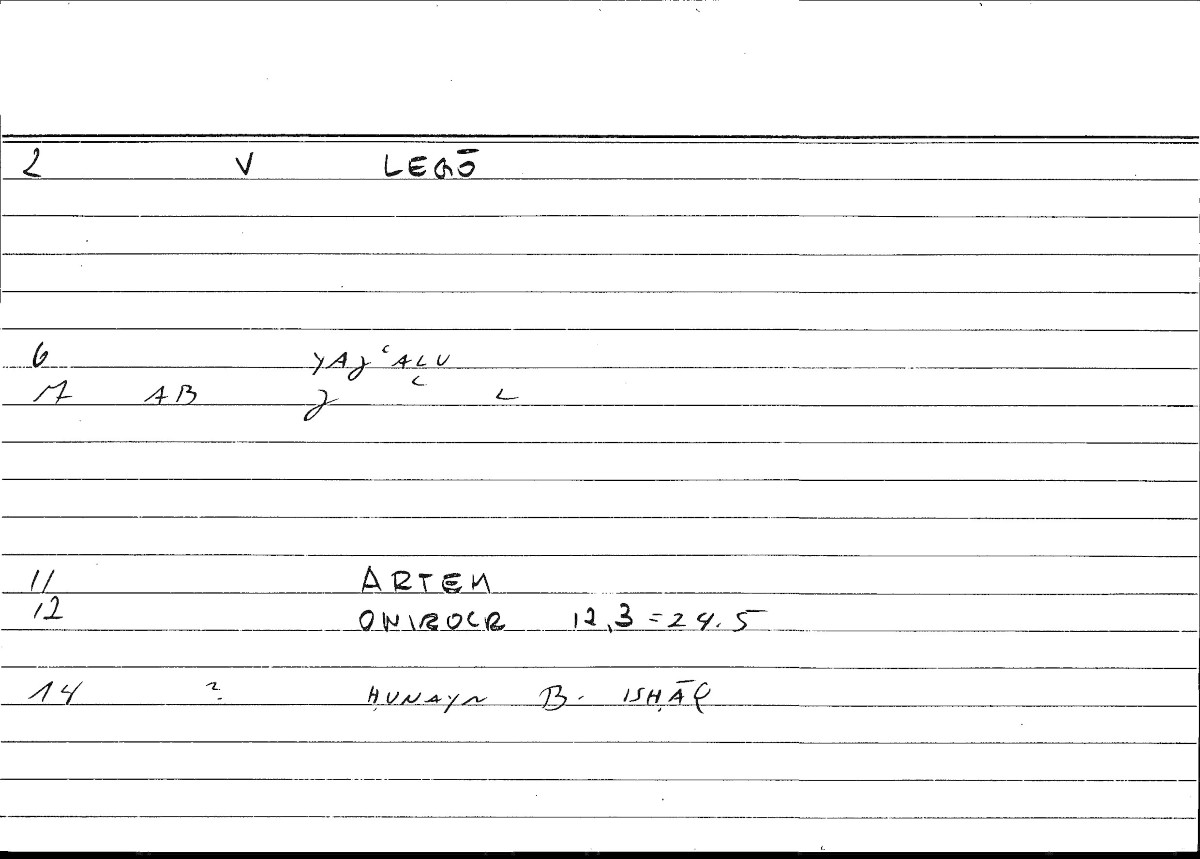 2 V LEGŌ
6 YAJʿALU
17 AB J ʿ L
11 ARTEM
12 ONIROCR 12,3 = 24.5
14 ? ḤUNAYN B. ISḤĀQ